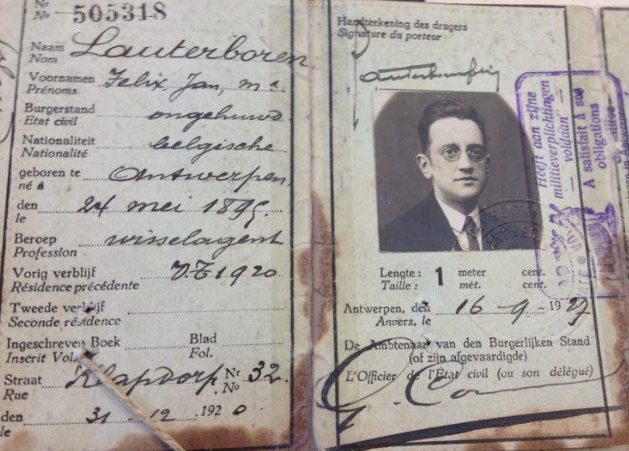 Nr
No 505318
Naam
Nom Lauterboren
Voornamen
Prénoms. Felix, Jan, Ma
Burgerstand
Etat civil ongehuwd
Nationaliteit
Nationalité belgische
geboren te
né à Antwerpen
den
le 24 mei 1895
Beroep
Profession wisselagent
Vorig verblijf
Résidence précédente V.T. 1920
Tweede verblijf
Seconde résidence
Ingeschreven Boek Blad
Inscrit Vol. Fol.
Straat Klapdorp Nr 32.
Rue No
den 31 12 1920
le
Handteekening des dragers
Signature du porteur
Heeft aan zijne
militieverplichtingen
voldaan
A satisfait à ses
obligations
Lengte : 1 meter cent.
Taille : mèt. cent.
Antwerpen, den 16 - 9 - 1927
Anvers, le
De Ambtenaar van den Burgerlijken Stand
(of zijn afgevaardigde)
L'Officier de l'État civil (ou son délégué)